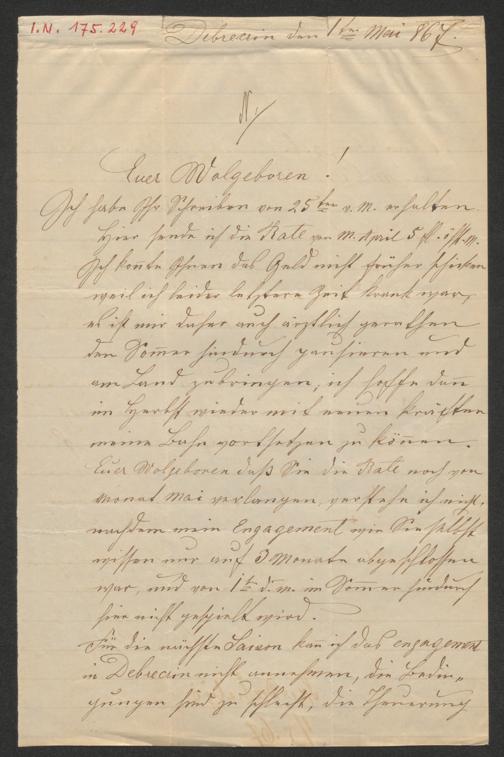 I.N. 175.229
Debreczin den 1ten Mai 867.
N/
Euer Wolgeboren!
Ich habe Ihr Schreiben von 25ten v. M. erhalten
Hier sende ich die Rate von M. April 5 fl.
Ich konnte Ihnen das Geld nicht früher schicken
weil ich leider letztere Zeit krank war,
es ist mir daher auch ärztlich gerathen
den Sommer hindurch pausieren und
am Land zubringen, ich hoffe dann
im Herbst wieder mit neuen Kräften
meine Bahn vortsetzen zu können.
Euer Wolgeboren daß Sie die Rate noch von
Monat Mai verlangen, verstehe ich nicht,
nachdem mein Engagement wie Sie selbst
wissen nur auf 3 Monate abgeschlossen
war, und von 1ten d. M. im Sommer hindurch
hier nicht gespielt wird.
Für die nächste Saison kann ich das engagement
in Debreczin nicht annehmen, die Bedin-
gungen sind zu schlecht, die Theuerung